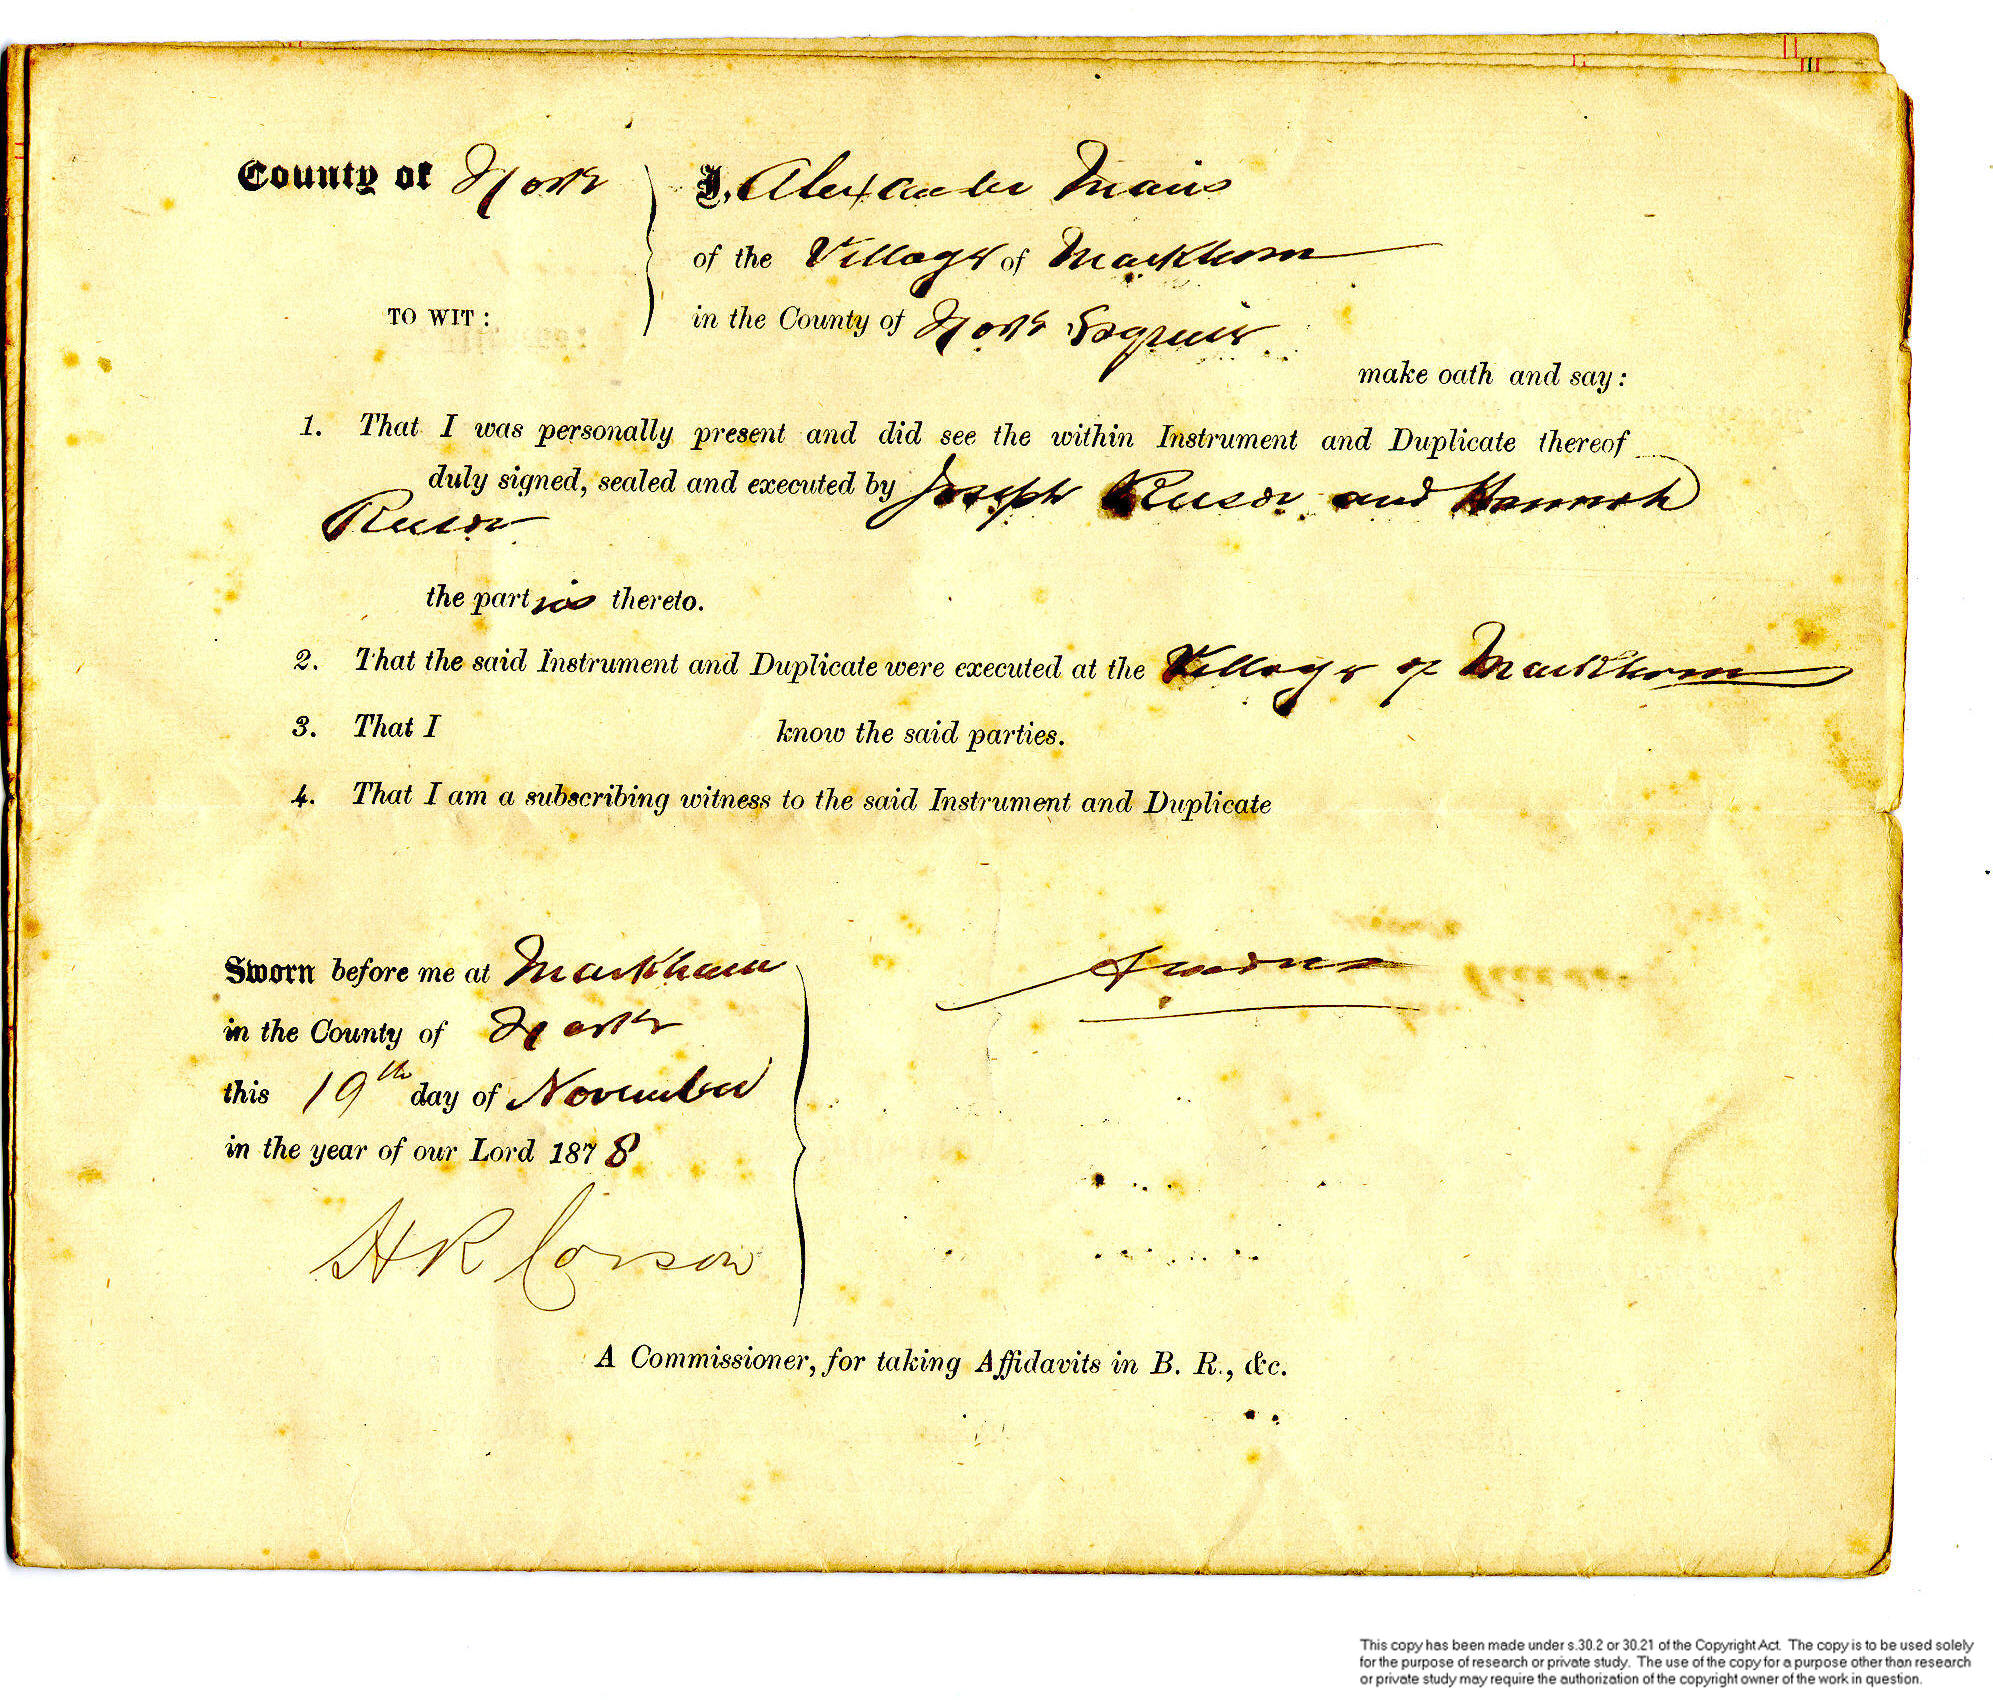 County of York
I, Alexander
of the Village of Markham
TO WIT:
in the County of York Esquire
make oath and say:
1. That I was personally present and did see the within Instrument and Duplicate thereof
duly signed, sealed and executed by Joseph Reesor and Hannah
Reesor
the parties thereto.
2. That the said Instrument and Duplicate were executed at the Village of Markham
3. That I know the said parties.
4. That I am a subscribing witness to the said Instrument and Duplicate
Sworn before me at Markham
in the County of York
this 19th day of November
in the year of our Lord 1878
H R Corson
A Commissioner, for taking Affidavits in B. R., &c.
This copy has been made under s.30.2 or 30.21 of the Copyright Act. The copy is to be used solely
for the purpose of research or private study. The use of the copy for a purpose other than research
or private study may require the authorization of the copyright owner of the work in question.